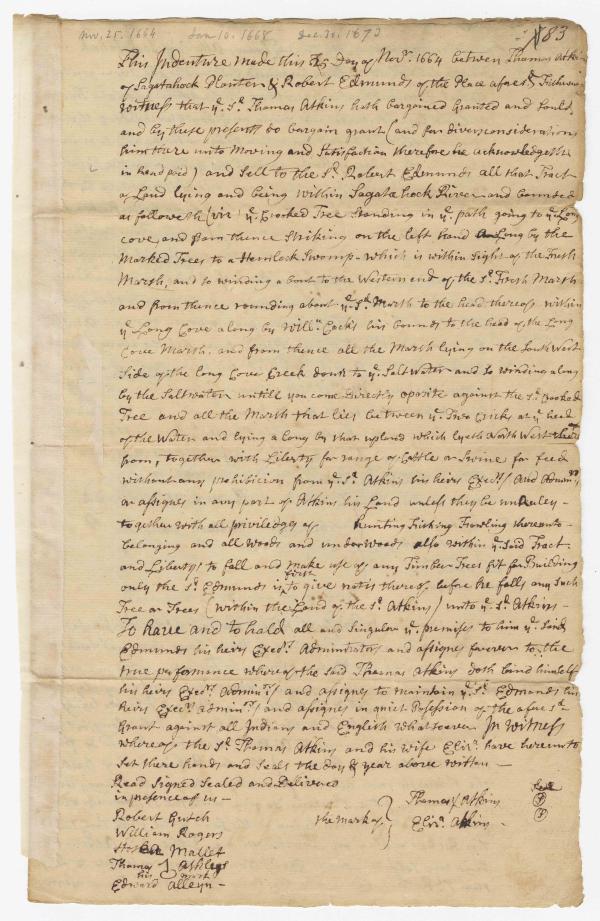 Nov. 25. 1664 Jan 10. 1668 Dec. 30. 1673
83
This Indenture made this 25 Day of Novr. 1664 betwen Thomas Atki
of Sagatahock Planter & Robert Edmunds of the Place afores.d
Witness that ye. Sd. Thomas Atkins hath bargained Granted and Sould
and by these presents do bargain grant (and for divers considerations
him there unto Moving and Satisfaction therefore he acknowledgeth
in hand paid) and Sell to the Sd. Robert Edmunds all that Tract
of Land lying and being within Sagatahock River and bounded
as followeth (viz ye. Crooked Tree Standing in ye. path going to ye Long
cove, and from thence Striking on the left hand Long by the
Marked Trees to a Hemlock Swomp - which is within Sight of the Fresh
Marsh, and so winding a bout to the Western end of the Sd. Fresh Marsh
and from thence rounding about ye. Sd. Marsh to the head thereof within
ye Long Cove along by Willm. Cocks his bounds to the head of the Long
Cove Marsh, and from thence all the Marsh lying on the South West
Side of the long Cove Creek down to ye. Salt Water and so winding along
by the Saltwater untill you come Directly oposite against the Sd. Crooked
Tree and all the Marsh that lies between ye. Two Cricks at ye head
of the Water and lying a long by that upland which lyeth North West
from, together with Liberty for range of Cattle or Swine for feed
without any prohibicion from ye. Sd. Atkins his heirs Execrs/ And Adminrs
or assignes in any part of Atkins his Land unless they be unRuley -
together with all priviledges of hunting Fishing Fowling thereunto -
belonging and all Woods and underwoods also within ye. Said Tract
and Liberty to fall and make use of any Timber Trees fit for Building
only the Sd. Edmunds is first to give notis thereof before he falls any Such
Tree or Trees (within the Land of the Sd. Atkins) unto ye. Sd. Atkins -
To have and to hald all and Singular ye. premises to him ye. Said
Edmunds his heirs Execrs. Administrators and assignes forever to the
true performance whereof the Said Thomas Atkins doth bind himself
his heirs Execrs. Adminrs/ and assignes to maintain ye. Sd. Edmunds his
heirs Execrs. adminrs/ and assignes in quiet Posession of the afore sd.
Grant against all Indians and English whatsoever In witness
whereof the Sd. Thomas Atkins and his wife Eliza. have hereunto
Set there hands and Seals the Day & year above written -
Read Signed Sealed and Delivered
in presence of us -
Robert Gutch
William Rogers
Mallet
Thomas Atkings
his mark
Edward Alleyn -
the mark of
Thomas Atkins
Eliza. Atkins -